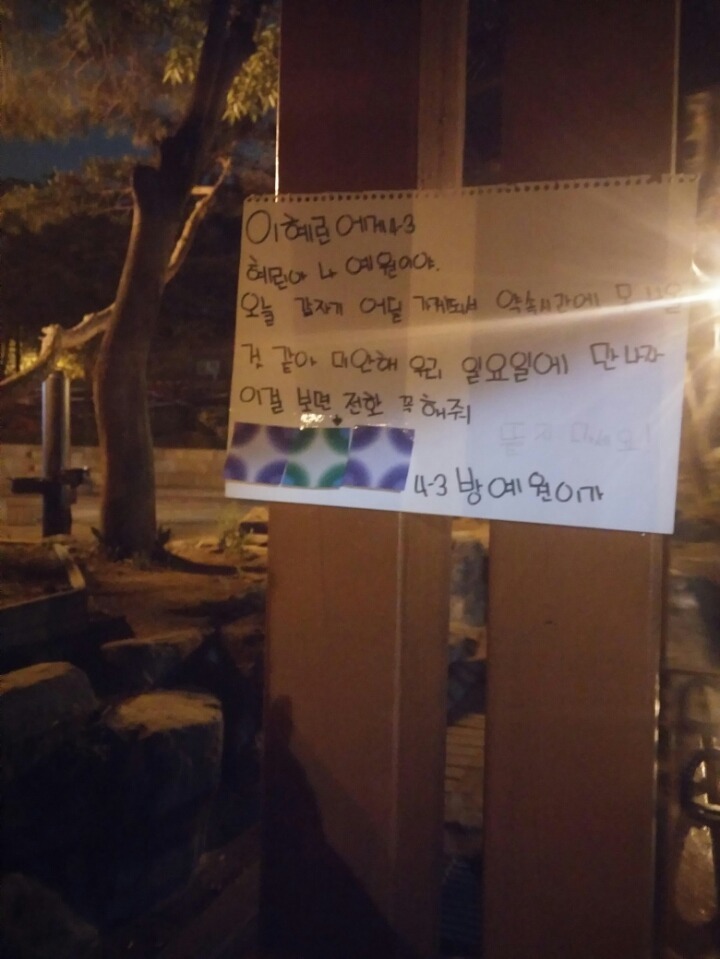 이혜린에게 4-3
혜린아 나 예원이야.
오늘 갑자기 어딜 가게되서 약속시간에
것 같아 미안해 우리 일요일에 만나자
이걸 보면 전화 꼭 해줘
4-3 방예원이가